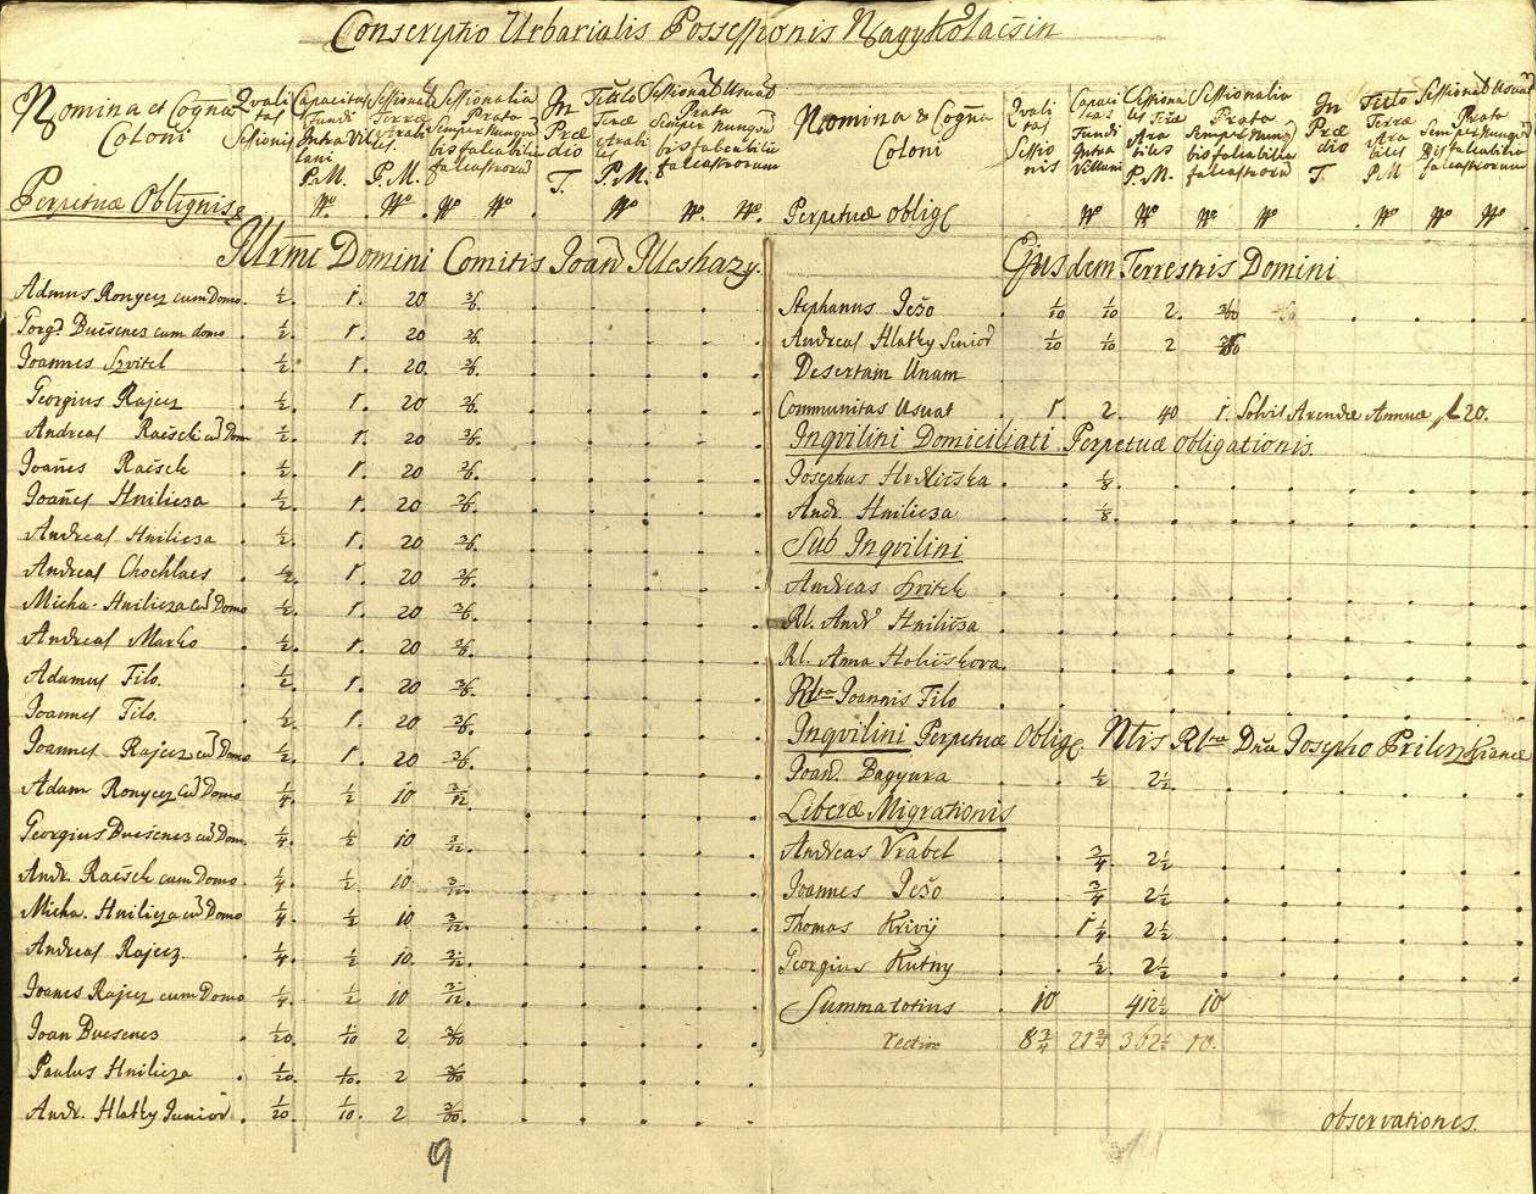 Conscriptio Urbarialis Possessionis Nagy Kolacsin
Nomina et Cogna Coloni
Perpetuæ Obligniss
Quali tas Sessionis
Capacitas Fundi Intra Vil lani P.M. No
Sessionales Terræ Arabi les. P.M. No
Sessionalia Prata Semper Nunqva bis falcabilia falcastrorum No No
In Præ dio T.
Titulo Terræ Arabi les P.M. No
Sessional Usuat Prata Semper Nunqva bis falcabilia falcastrorum No. No.
Illrmi Domini Comitis Joan Illeshazy.
Admus Ronyecz cum Domo. 1/2. 1. 20 3/6.
Geog. Buesenes cum domo 1/2. 1. 20 3/6.
Joannes Szvitek 1/2. 1. 20. 3/6.
Georgius Rajecz 1/2. 1. 20 3/6.
Andreas Raisek cu Dom 1/2. 1. 20 3/6.
Joañes Raisek 1/2. 1. 20 3/6.
Joañes Hnilicza 1/2. 1. 20 3/6.
Andreas Hnilicza 1/2. 1. 20 3/6.
Andreas Chochlaes 1/2. 1. 20 3/6.
Micha. Hnilicza cu Domo 1/2. 1. 20 3/6.
Andreas Marko 1/2. 1. 20 3/6.
Adamus Filo. 1/2. 1. 20 3/6.
Joannes Filo. 1/2. 1. 20 3/6.
Joannes Rajecz cu Domo 1/2. 1. 20 3/6.
Adam Ronyecz cu Domo 1/4. 1/2 10 3/12.
Georgius Buesenes cu Dom. 1/4. 1/2 10 3/12.
Andr. Raisek cum Domo. 1/4. 1/2 10 3/12.
Micha. Hnilicza cu Domo 1/4. 1/2 10 3/12.
Andreas Rajecz. 1/4. 1/2 10. 3/12.
Joanes Rajecz cum Domo 1/4. 1/2 10 3/12.
Joan Buesenes 1/20. 1/10 2 3/60
Paulus Hnilicza 1/20. 1/10. 2 3/60
Andr. Hlatky Junior. 1/20. 1/10. 2 3/60.
9
Nomina & Cogna Coloni
Perpetuæ oblig
Quali tas Sessio nis
Capaci tas Fundi Intra Villani No
Sessiona les Teræ Ara biles P.M. No
Sessionalia Prata Semper Nunq bis falcabilia falcastroru No No
In Præ dio T
Titlo Terræ Ara biles P.M No
Sessional Usuat Prata Semper Nunqva Bis falcabilia falcastrorum No No
Ejusdem Terrestris Domini
Stephanus Ješo 1/10 1/10 2. 3/60
Andreas Hlatky Senior 1/20 1/10 2
Desertam Unam
Communitas Usuat 1. 2. 40 1. Solvit Arendæ Annuæ f 20.
Inqvilini Domiciliati Perpetuæ Obligationis.
Josephus Hrdlicska 1/8.
Andr. Hnilicza 1/8.
Sub Inqvilini
Andreas Szvitek
Rl. Andr Hnilicza
Rl. Anna Holicskova.
Rlta Joannis Filo
Inqvilini Perpetuæ Oblig. Ntis Rltæ Dnæ Josepho Prileszkianæ
Joan. Bagyura 1/2 2 1/2.
Liberæ Migrationis
Andreas Vrabel 3/4. 2 1/2
Joannes Ješo 3/4 2 1/2
Thomas Krivij 1 1/4. 2 1/2
Georgius Kutny 1/2. 2 1/2
Summa totius 10 412 1/2 10
rectius 8 3/4 21 3/4 362 1/2 10.
observationes.